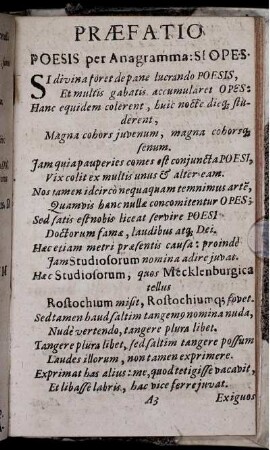 PRÆFATIO
POESIS per Anagramma: SI OPES.
SI divina foret de pane lucrando POESIS,
Et multis gabatis accumularet OPES:
Hanc equidem colerent, huic nocte dieq; stu-
derent,
Magna cohors juvenum, magna cohorsq;
senum.
Jam quia pauperies comes est conjuncta POESI,
Vix colit ex multis unus & alter eam.
Nos tamen idcircò nequaquam temnimus artẽ,
Quamvis hanc nullæ concomitentur OPES;
Sed satis est nobis liceat servire POESI
Doctorum famæ, laudibus atq; Dei.
Hæc etiam metri præsentis causa: proindè
Jam Studiosorum nomina adire juvat.
Hæc Studiosorum, quos Mecklenburgica
tellus
Rostochium misit, Rostochiumq; fovet.
Sed tamen haud saltim tangemꝰ nomina nuda,
Nudè vertendo, tangere plura libet.
Tangere plura libet, sed saltim tangere possum
Laudes illorum, non tamen exprimere.
Exprimat has alius: me, quod tetigisse vacavit,
Et libasse labris, hac vice ferre juvat.
A3 Exiguos